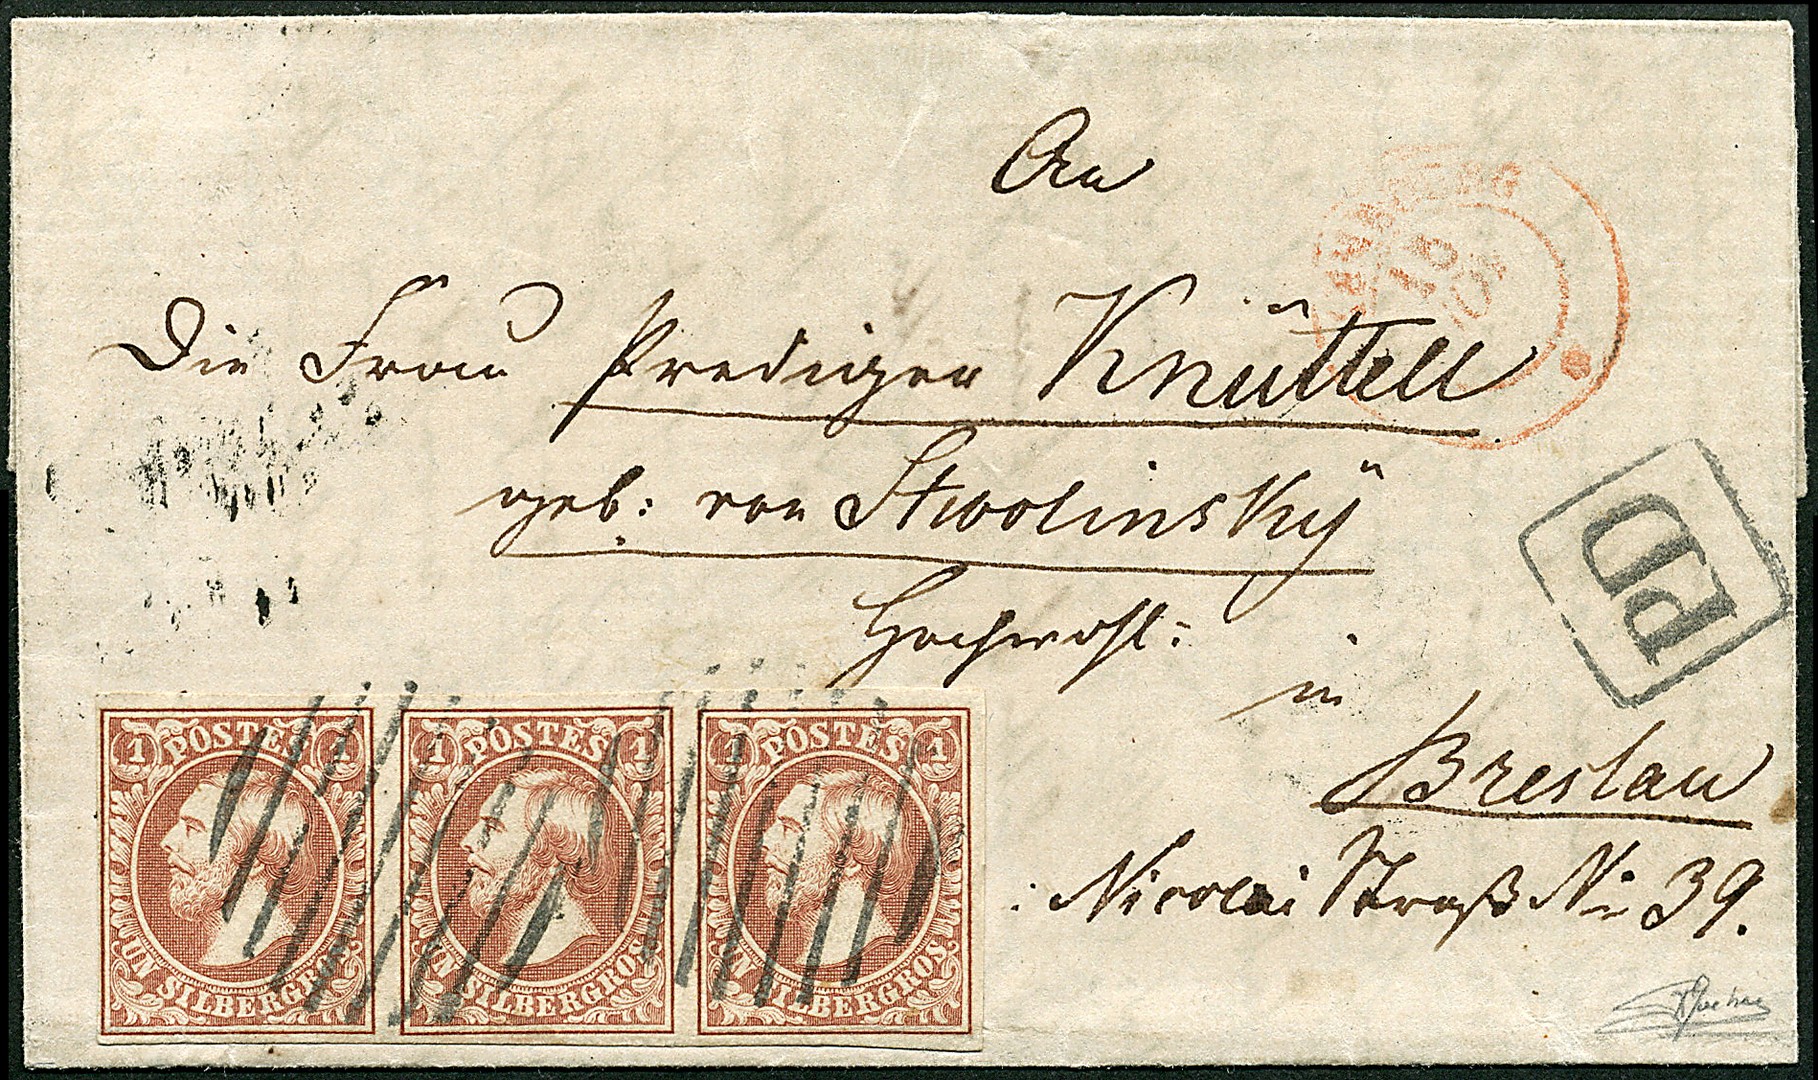 An
Die Frau Prediger Knüttell
geb: von Stwolinsky
Hochwohl:
in
Breslau
: Nicolai Straß No 39.
PD
1 POSTES 1
UN SILBERGROS
1 POSTES 1
UN SILBERGROS
1 POSTES 1
UN SILBERGROS